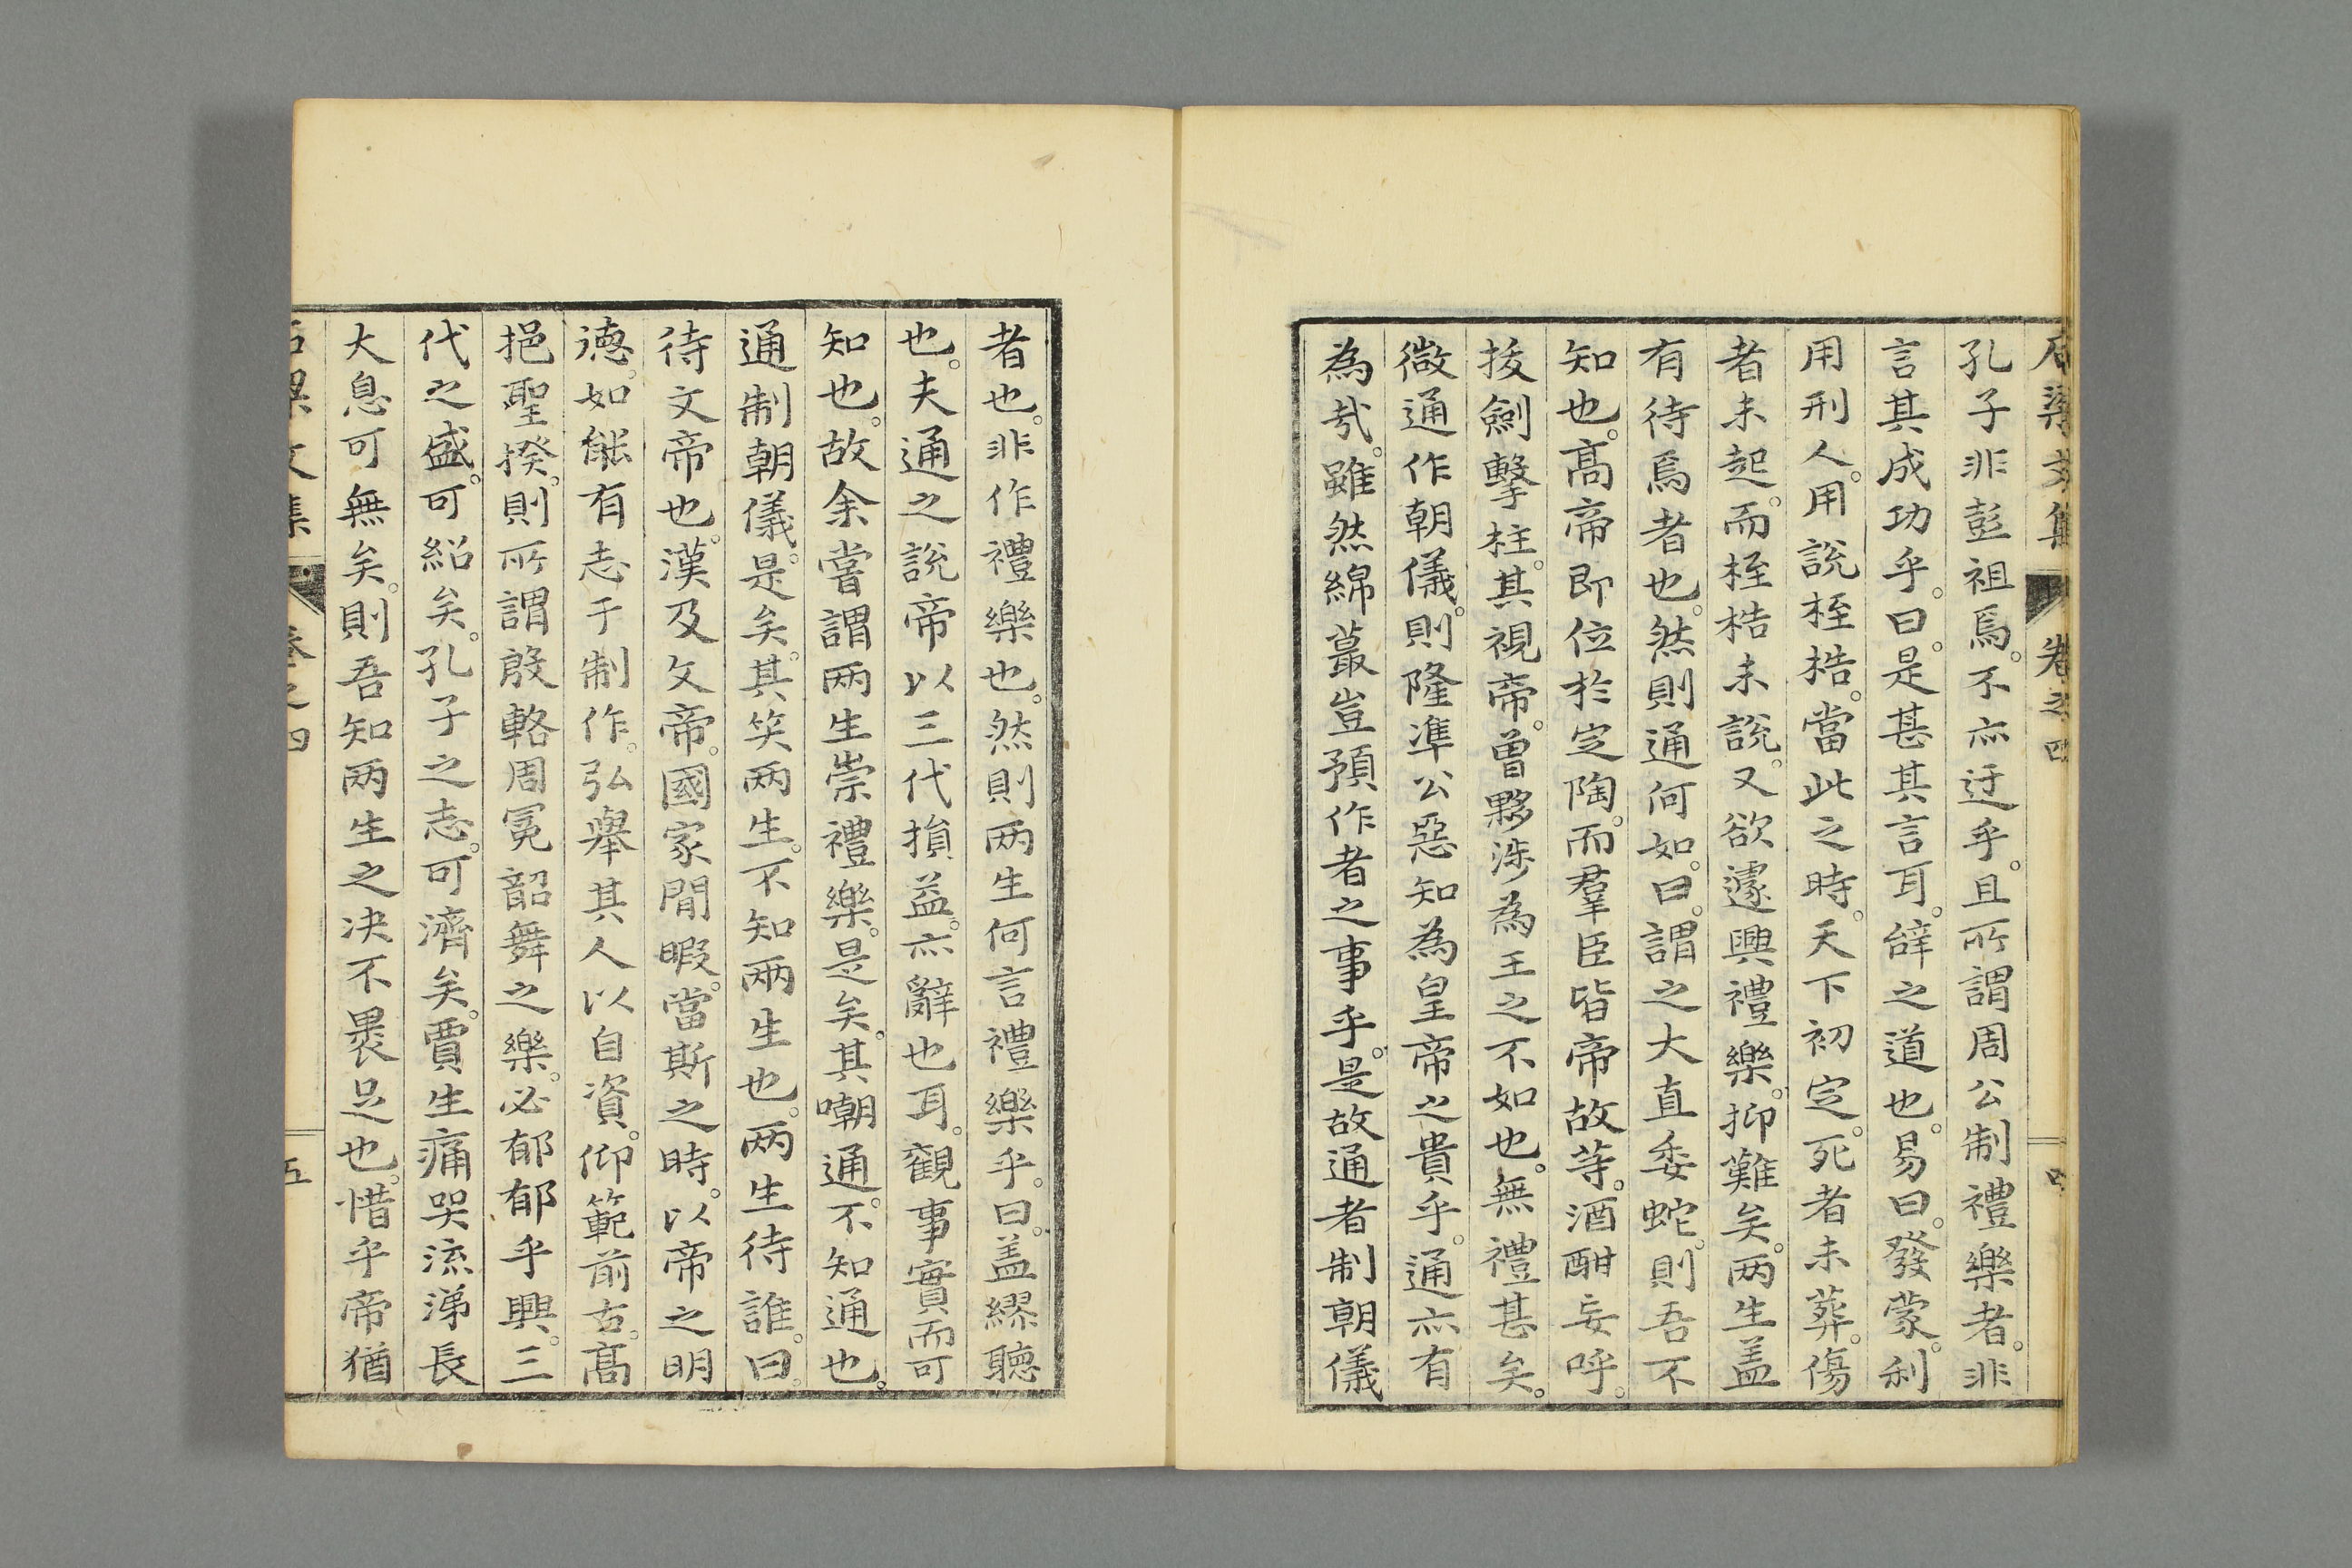 石梁文集 卷之四 四
孔子非彭祖焉。不亦迂乎。且所謂周公制禮樂者。非
言其成功乎。曰。是甚其言耳。辟之道也。易曰。發蒙。利
用刑人。用說桎梏。當此之時。天下初定。死者未葬。傷
者未起。而桎梏未說。又欲遽興禮樂。抑難矣。两生盖
有待焉者也。然則通何如。曰。謂之大直委蛇。則吾不
知也。髙帝即位於定陶。而羣臣皆帝故等。酒酣妄呼。
拔劍擊柱。其視帝。曽夥涉為王之不如也。無禮甚矣。
微通作朝儀。則隆準公惡知為皇帝之貴乎。通亦有
為㢤。雖然綿蕞豈預作者之事乎。是故通者制朝儀
者也。非作禮樂也。然則两生何言禮樂乎。曰。盖繆聽
也。夫通之說帝以三代損益。亦辭也耳。觀事實而可
知也。故余嘗謂两生崇禮樂。是矣。其嘲通。不知通也。
通制朝儀。是矣。其笑两生。不知两生也。两生待誰。曰。
待文帝也。漢及文帝。國家閒暇。當斯之時。以帝之明
德。如能有志于制作。弘舉其人以自資。仰範前古。髙
挹聖揆。則所謂殷輅周冕韶舞之樂。必郁郁乎興。三
代之盛。可紹矣。孔子之志。可濟矣。賈生痛哭流涕長
大息可無矣。則吾知两生之决不褁足也。惜乎帝猶
石梁文集 卷之四 五